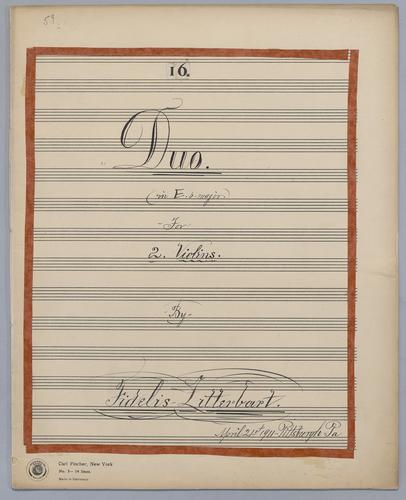 59
16.
Duo.
(in E.b major.)
-For-
2. Violins.
-By-
Fidelis-Zitterbart.
April 21st 1911-Pittsburgh Pa
Carl Fischer, New York
No. 3— 14 lines.